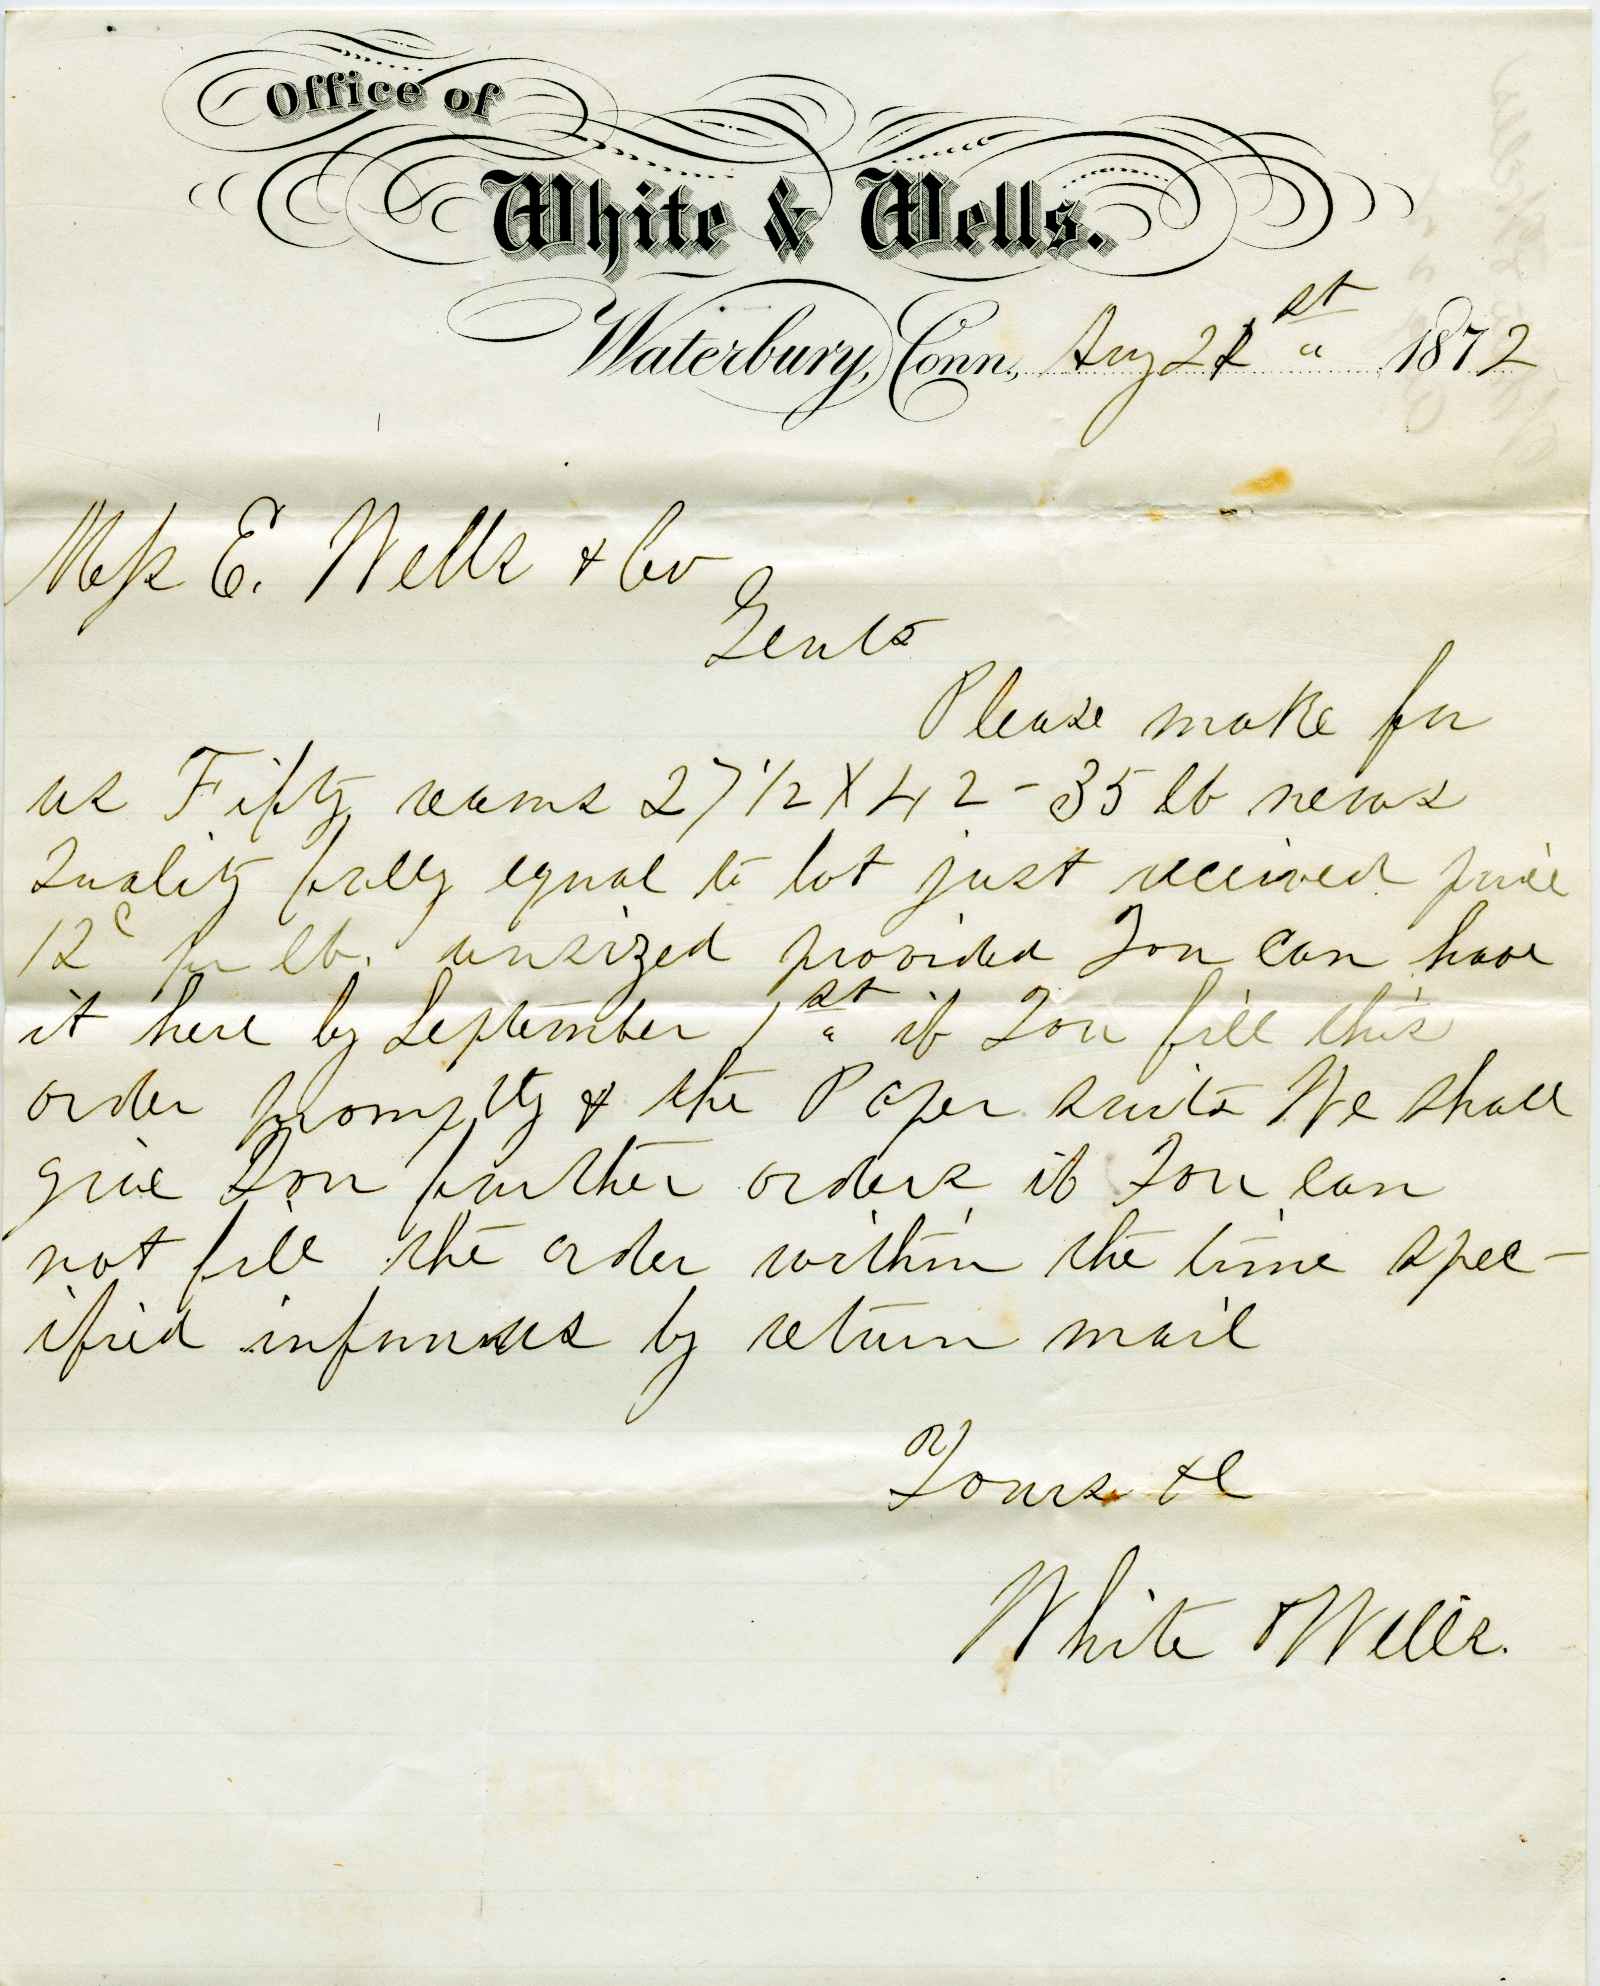 Office of
White & Wells.
Waterbury, Conn., Aug 21st 1872
Mess E. Wells & Co
Gents
Please make for
us Fifty reams 27 1/2 X 42 - 35 lb news
Quality fully equal to lot just received price
12c per lb. unsized provided You can have
it here by September 1st if You fill this
order promptly & the Paper suits We shall
give You further orders if You can
not fill the order within the time spec-
ified inform us by return mail
Yours &c
White & Wells.